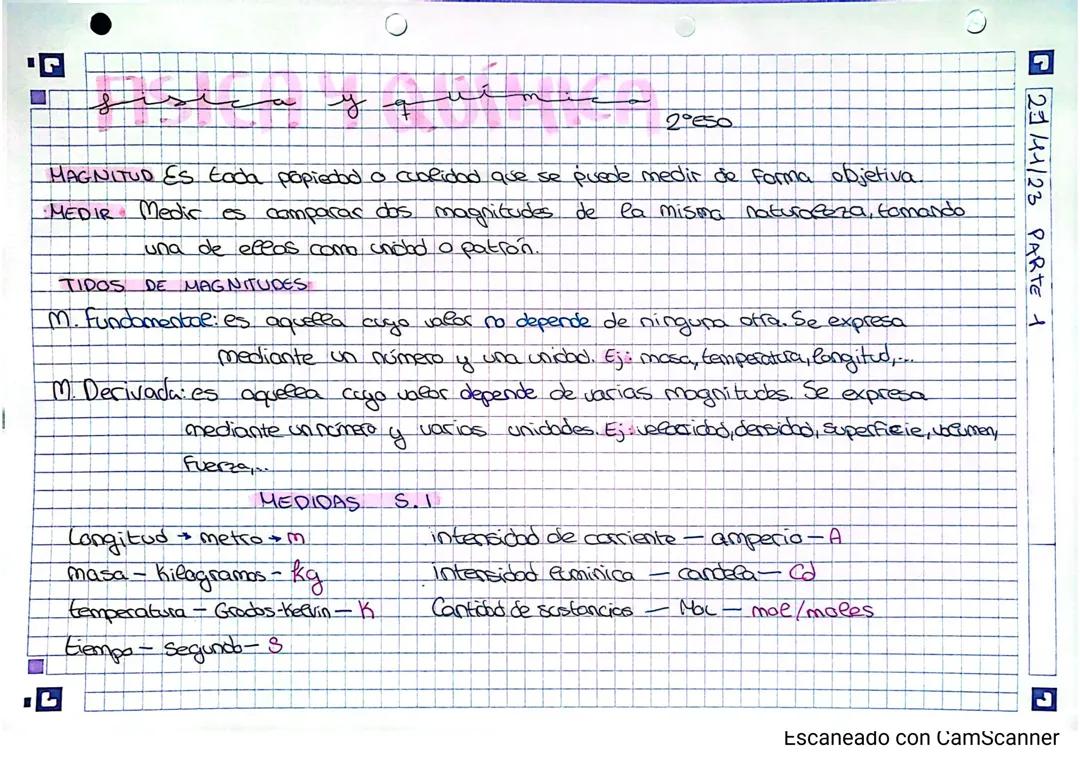 FÍSICA Y QUÍMICA
física y química
2ºESO
MAGNITUD Es toda popiedad o cualidad que se puede medir de forma objetiva.
MEDIR: Medir es comparar dos magnitudes de la misma naturaleza, tomando
una de ellas como unidad o patrón.
TIPOS DE MAGNITUDES
M. Fundamental: es aquella cuyo valor no depende de ninguna otra. Se expresa
mediante un número y una unidad. Ej: masa, temperatura, longitud,...
M. Derivada: es aquella cuyo valor depende de varias magnitudes. Se expresa
mediante un número y varias unidades. Ej: velocidad, densidad, superficie, volumen,
Fuerza,...
MEDIDAS S.I
Longitud → metro → m
masa - Kilogramos - kg
temperatura - Grados-Kelvin - K
tiempo - segundo - S
intensidad de corriente - amperio - A
intensidad luminica - candela - Cd
Cantidad de sustancias - Mol - mol/moles
PARTE 1
Escaneado con CamScanner